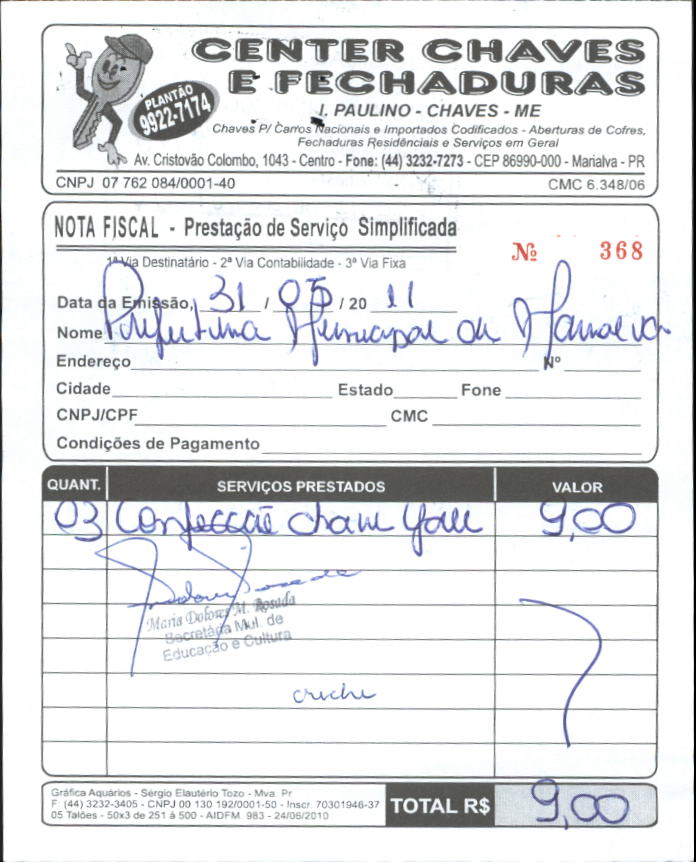 CENTER CHAVES
E FECHADURAS
PLANTÃO
9922-7174
J. PAULINO - CHAVES - ME
Chaves P/ Carros Nacionais e Importados Codificados - Aberturas de Cofres,
Fechaduras Residênciais e Serviços em Geral
Av. Cristovão Colombo, 1043 - Centro - Fone: (44) 3232-7273 - CEP 86990-000 - Marialva - PR
CNPJ 07 762 084/0001-40 CMC 6.348/06
NOTA FISCAL - Prestação de Serviço Simplificada
Nº 368
1ª Via Destinatário - 2ª Via Contabilidade - 3ª Via Fixa
Data da Emissão, 31 / 05 / 20 11
Nome Prefeitura Municipal de Marialva
Endereço Nº
Cidade Estado Fone
CNPJ/CPF CMC
Condições de Pagamento
QUANT. SERVIÇOS PRESTADOS VALOR
03 Confecção chave Yale 9,00
Maria Dolores M. Rosada
Secretária Mul. de
Educação e Cultura
creche
Gráfica Aquários - Sérgio Elautério Tozo - Mva. Pr
F: (44) 3232-3405 - CNPJ 00 130 192/0001-50 - Inscr. 70301946-37
05 Talões - 50x3 de 251 à 500 - AIDFM. 983 - 24/06/2010
TOTAL R$ 9,00